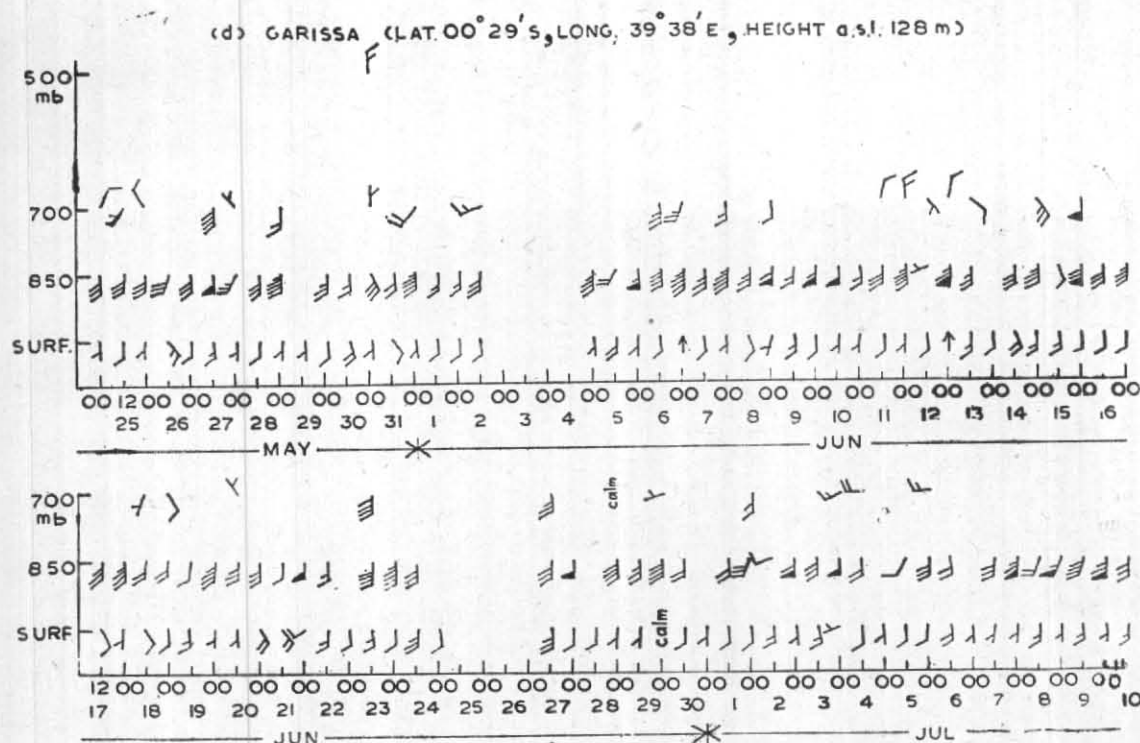 (d) GARISSA (LAT. 00°29'S, LONG, 39°38'E, HEIGHT a.s.l. 128 m)
500
mb
700
850
SURF.
00 12 00 00 00 00 00 00 00 00 00 00 00 00 00 00 00 00 00 00 00 00 00 00
25 26 27 28 29 30 31 1 2 3 4 5 6 7 8 9 10 11 12 13 14 15 16
MAY JUN
700
mb
calm
850
SURF
calm
12 00 00 00 00 00 00 00 00 00 00 00 00 00 00 00 00 00 00 00 00 00 00 00
17 18 19 20 21 22 23 24 25 26 27 28 29 30 1 2 3 4 5 6 7 8 9 10
JUN JUL